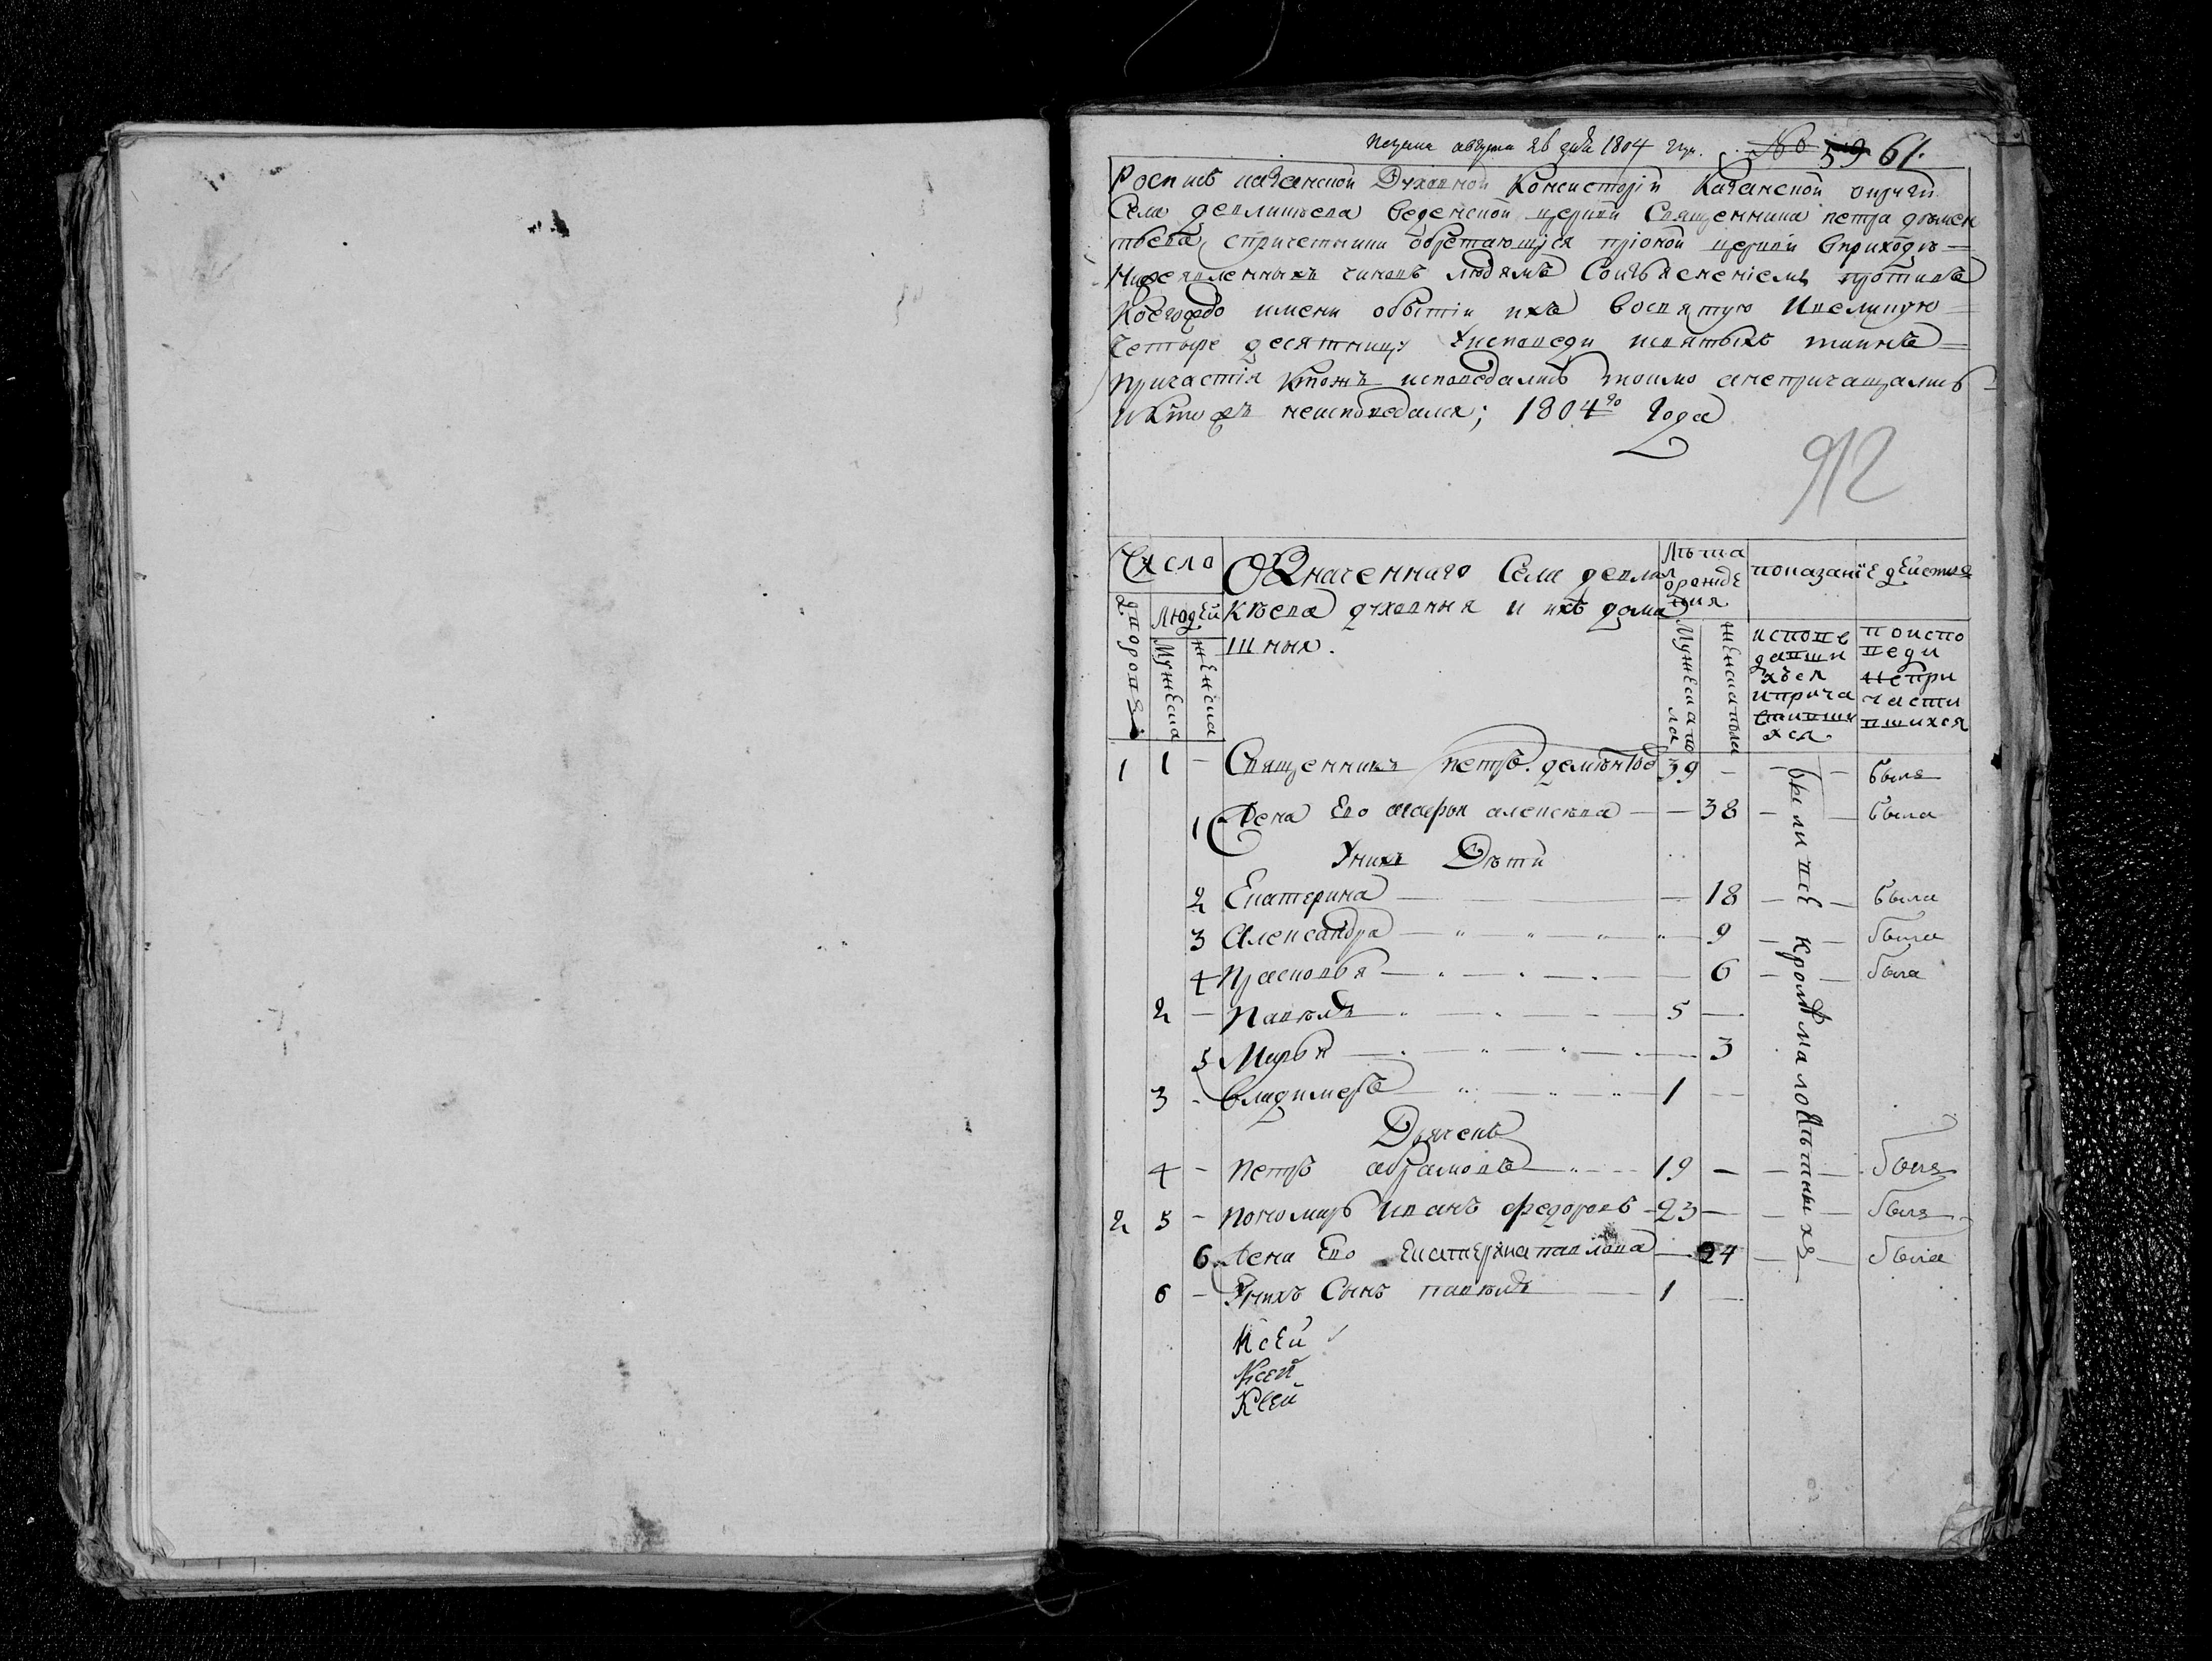 августа 26 дня 1804 году № 59 61.
Роспись казанской Духовной Консисторіи Казанской округи
Села девликѣева веденской церкви Священника петра демен
тьева спричетники обретающїися прионой церкви вприходѣ
Нижеявленныхъ чиновъ людямъ Соизъясненіемъ противъ
Коегождо имени обытіи ихъ восвятую Ивеликую
Четыре десятницу Уисповеди исвятыхъ таинъ
Причастія Ктожъ исповедались токмо анепричащались
иктожъ неисповедался; 1804го Года
912
Число
Означеннаго Села девли
кѣева духовныя и ихъ дома
шныя.
Лѣта
орожде
ния
показанїе действа
дворовъ
Людей
Мужеска
женска
Мужеска по
ла
женска пола
исповѣ
давши
хъся
иприча
стивши
хся.
поиспо
веди
непри
части
вшихся
1 1 - Священникъ петръ деменьтьевъ 39 - былъ
1 Жена Ево марѳа алексѣева - 38 - была
Унихъ Дѣти
2 Екатерина - 18 - была
3 Александра - 9 - была
4 Прасковья - 6 - была
2 - Павелъ 5 -
5 Марья 3
3 - Владимеръ 1 -
Дьячекъ
4 - Петръ абрамовъ 19 - былъ
2 5 - Пономарь Иванъ федоровъ 23 - былъ
6 Жена Ево Екатерина павлова 24 - была
6 - Унихъ Сынъ павелъ 1 -
были всѣ Кромѣ малолѣтныхъ
Ксей
Ксей
Ксей